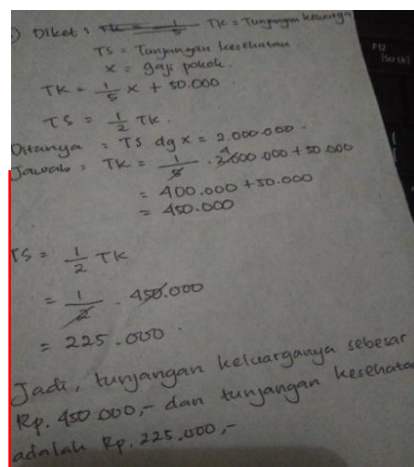 ) Diket : TK = 1/5 TK = Tunjangan keluarga
TS = Tunjangan kesehatan
x = gaji pokok.
TK = 1/5 x + 50.000
TS = 1/2 TK.
Ditanya = TS dg x = 2.000.000.
Jawab : TK = 1/5 . 2.000.000 + 50.000
= 400.000 + 50.000
= 450.000
TS = 1/2 TK
= 1/2 . 450.000
= 225.000.
Jadi, tunjangan keluarganya sebesar
Rp. 450.000,- dan tunjangan kesehata
adalah Rp. 225.000,-
F12